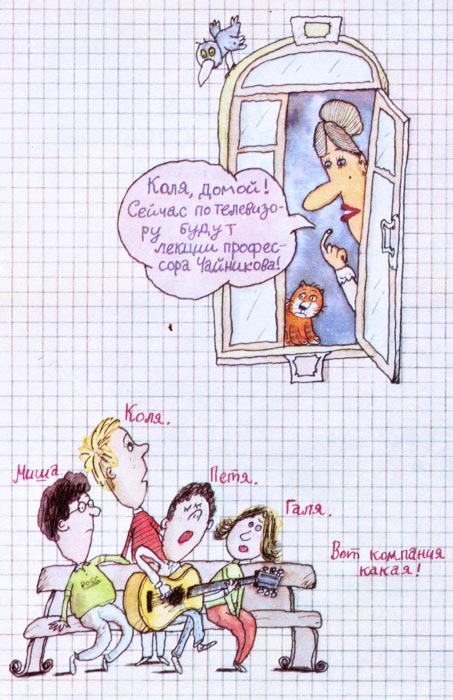 Коля, домой!
Сейчас по телевизо-
ру будут
лекции профес-
сора Чайникова!
Коля.
Миша
Петя.
Галя.
Вот компания
какая!